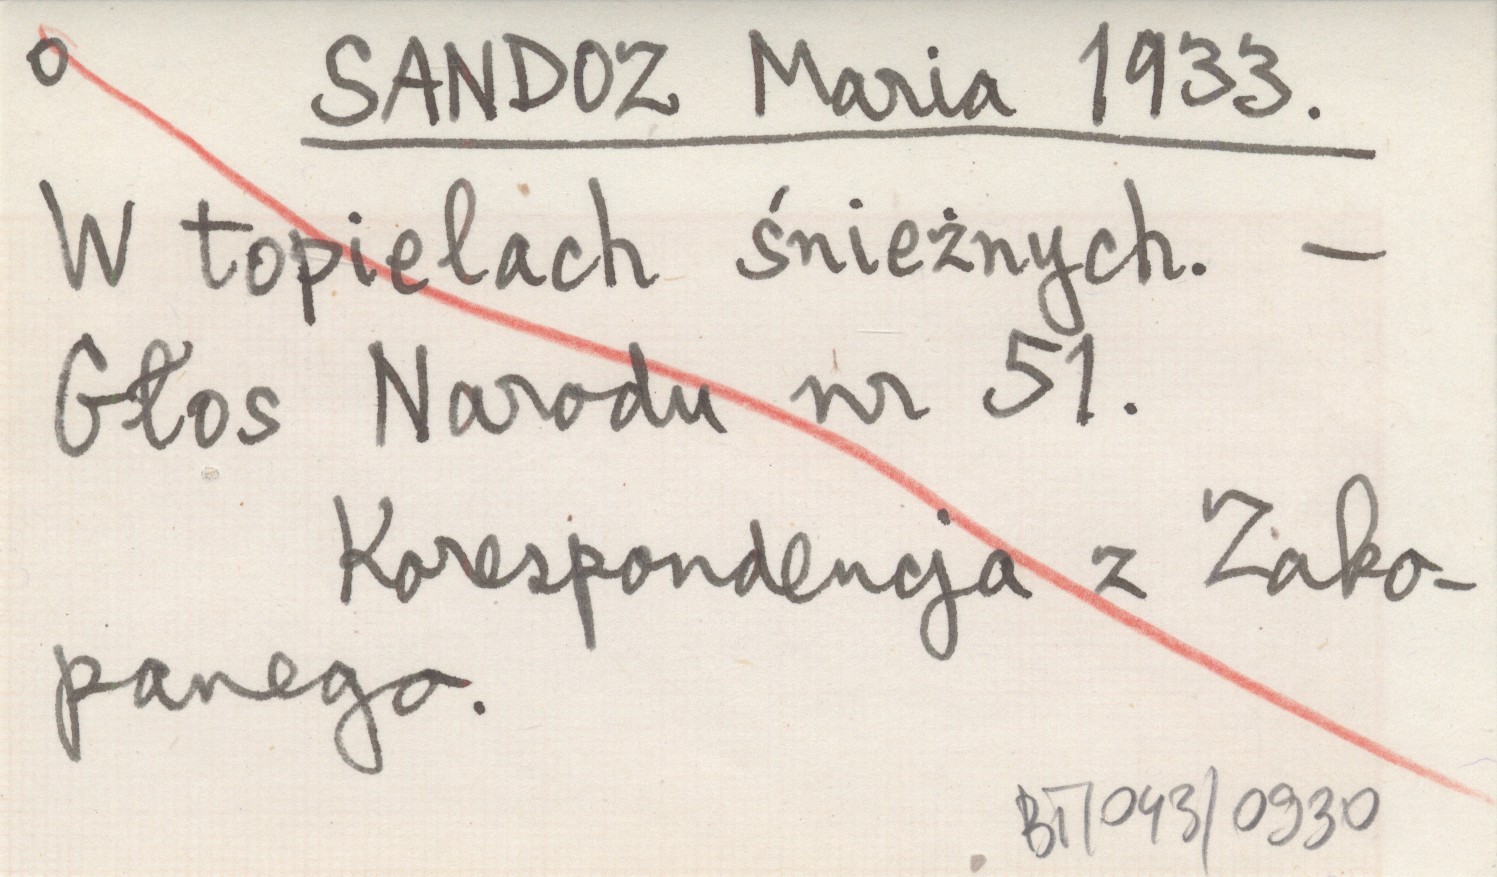 o SANDOZ Maria 1933.
W topielach śnieżnych. —
Głos Narodu nr 51.
Korespondencja z Zako-
panego.
BT/043/0930